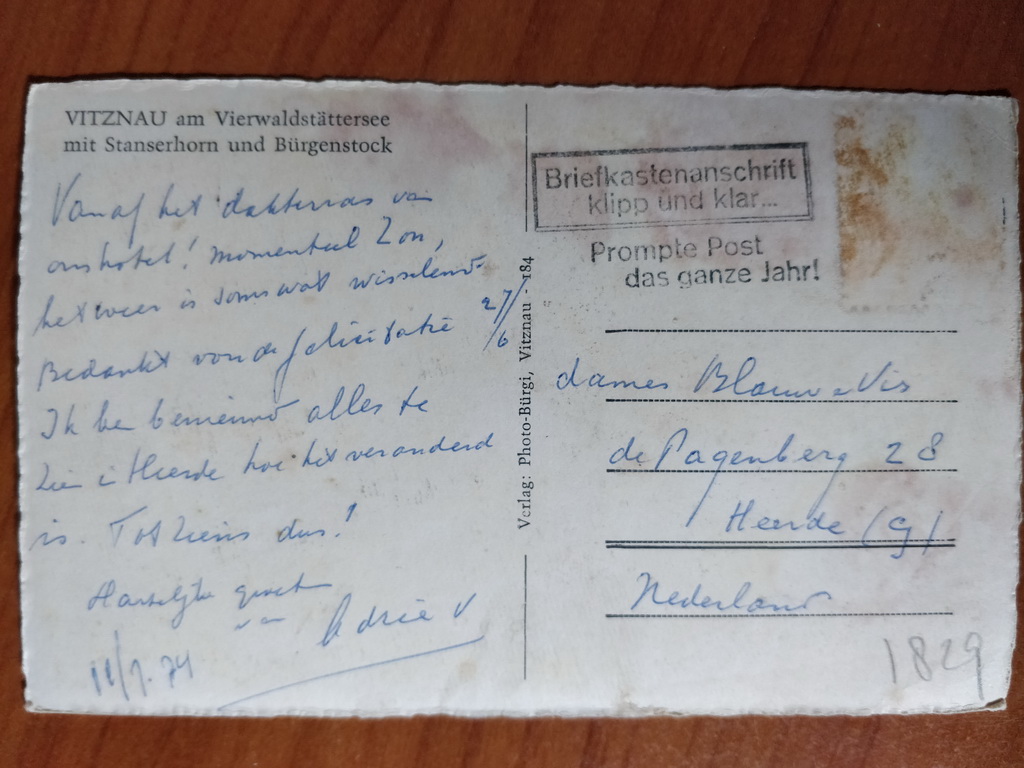 VITZNAU am Vierwaldstättersee
mit Stanserhorn und Bürgenstock
Vanaf het dakterras van
ons hotel! momenteel Zon,
het weer is soms wat wisselend.
Bedankt voor de felicitatie 27/6
Ik ben benieuwd alles te
zien in Heerde hoe het veranderd
is. Tot ziens dus!
Hartelijke groeten
van Adrie V
11/7.74
Verlag: Photo-Bürgi, Vitznau · 184
Briefkastenanschrift
klipp und klar...
Prompte Post
das ganze Jahr!
dames Blauw - Vis
de Pagenberg 28
Heerde (G)
Nederland
1829